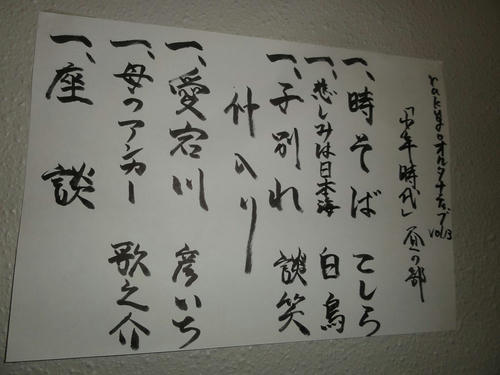 rakugoオルタナティブ vol3
「少年時代」昼の部
一、時そば こしら
一、悲しみは日本海 白鳥
一、子別れ 談笑
仲入り
一、愛宕川 彦いち
一、母のアンカー 歌之介
一、座談